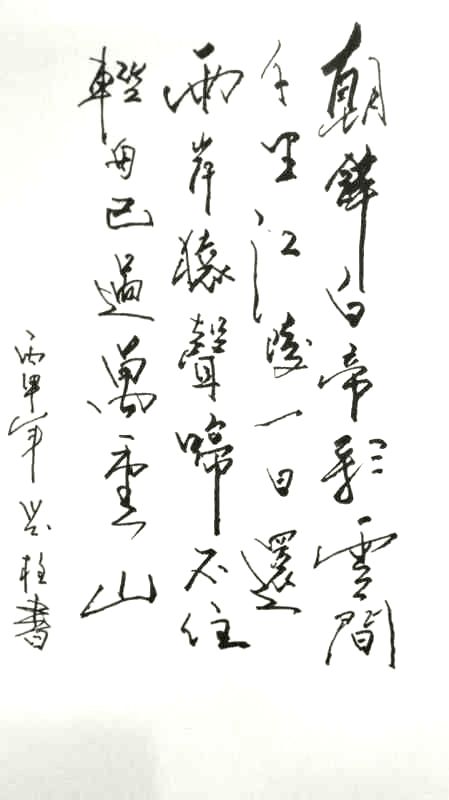 朝辭白帝彩雲間
千里江陵一日還
兩岸猿聲啼不住
輕舟已過萬重山
丙申年柱書